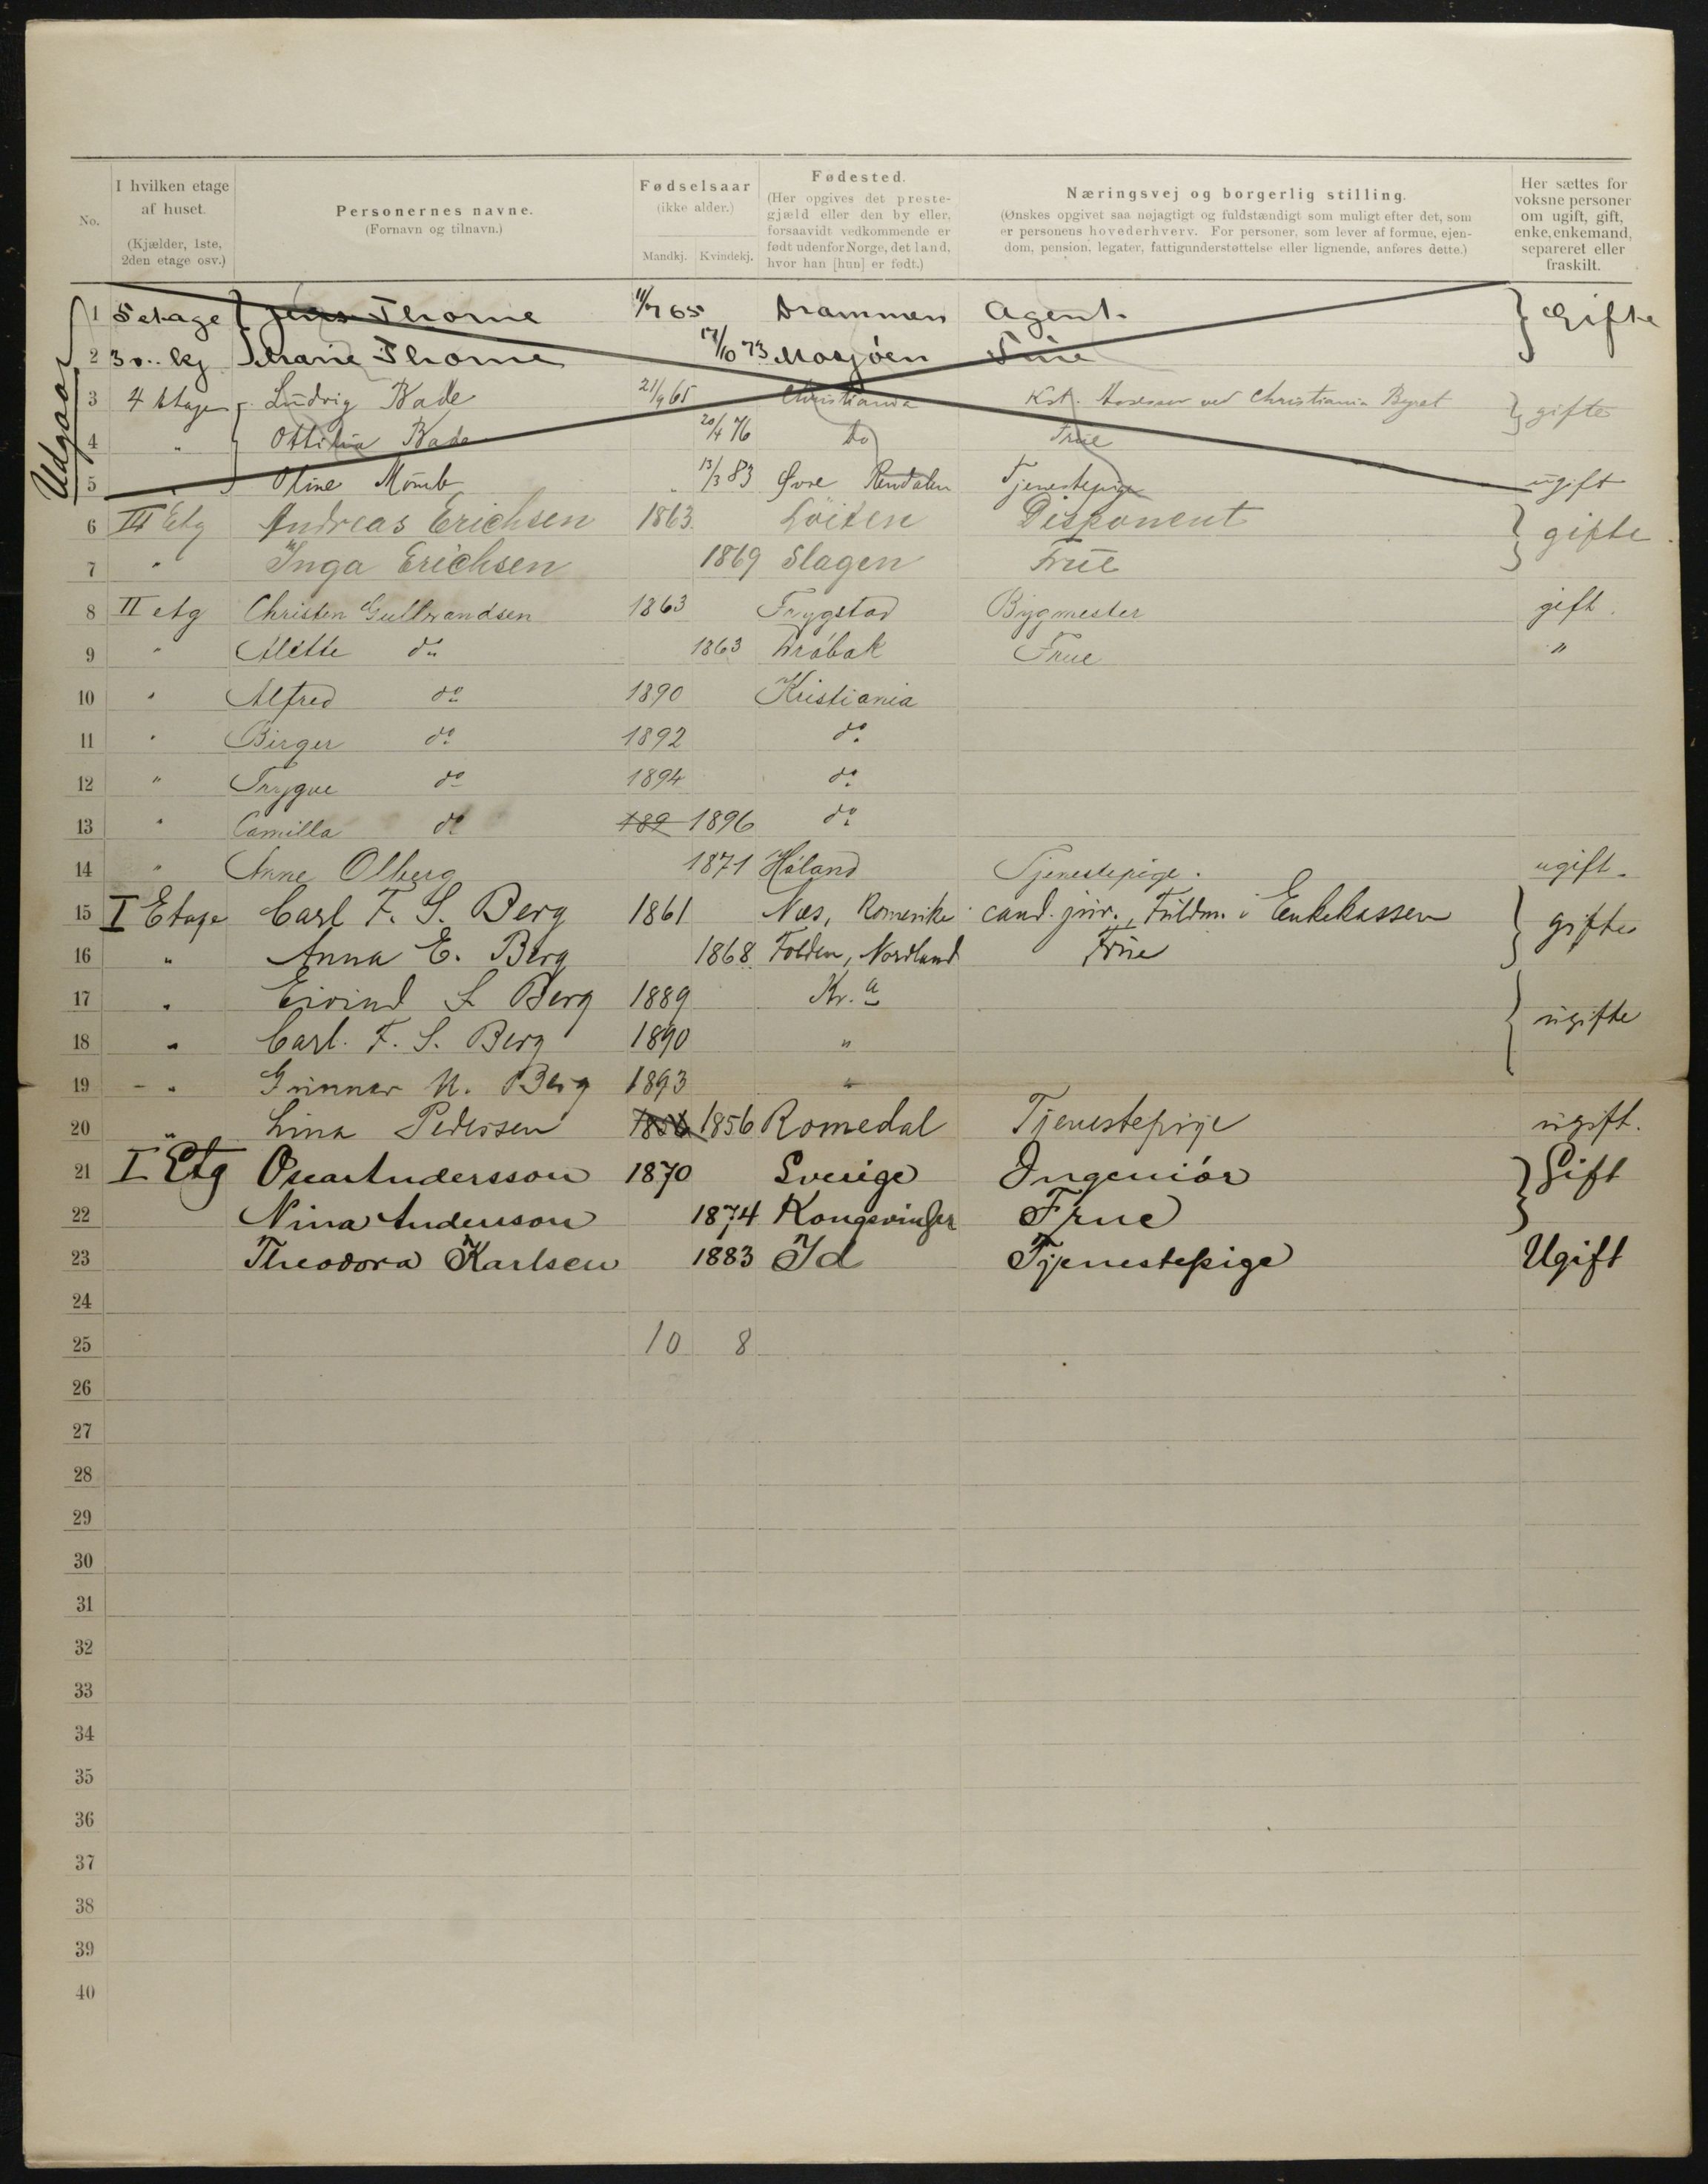 No. I hvilken etage af huset. (Kjælder, 1ste, 2den etage osv.) Personernes navne. (Fornavn og tilnavn.) Fødselsaar (ikke alder.) Mandkj. Kvindekj. Fødested. (Her opgives det prestegjæld eller den by eller, forsaavidt vedkommende er født udenfor Norge, det land, hvor han [hun] er født.) Næringsvej og borgerlig stilling. (Ønskes opgivet saa nøjagtigt og fuldstændigt som muligt efter det, som er personens hovederhverv. For personer, som lever af formue, ejendom, pension, legater, fattigunderstøttelse eller lignende, anføres dette.) Her sættes for voksne personer om ugift, gift, enke, enkemand, separeret eller fraskilt.
Udgaar
1 5 etage Jens Thorne 11/7 65 Drammen Agent. Gifte
2 Marie Thorne 17/10 73 Mosjøen Frue
3 4 Etage Ludvig Kade 21/9 65 Christiania Kst. Assessor ved Christiania Byret gifte
4 " Ottilia Kade 20/4 76 do Frue
5 " Oline 13/3 83 Øvre Rendalen Tjenestepige ugift
6 III Etg Andreas Erichsen 1863 Löiten Disponent gifte
7 " Inga Erichsen 1869 Slagen Frue
8 II etg Christen Gulbrandsen 1863 Trygstad Bygmester gift.
9 " Alette do 1863 Drøbak Frue "
10 " Alfred do 1890 Kristiania
11 " Birger do 1892 do
12 " Trygve do 1894 do
13 " Camilla do 189 1896 do
14 " Anne Olberg 1871 Høland Tjenestepige. ugift.
15 I Etage Carl F. S. Berg 1861 Næs, Romerike cand. jur., Fuldm. i Enkekassen gifte
16 " Anna E. Berg 1868 Folden, Nordland Frue
17 " Eivind S Berg 1889 Kr.a ugifte
18 " Carl. F. S. Berg 1890 "
19 - " Gunnar N. Berg 1893 "
20 " Lina Pedersen 1856 1856 Romedal Tjenestepige ugift.
21 I Etg Oscar Andersson 1870 Sverige Ingeniör Gift
22 Nina Andersson 1874 Kongsvinger Frue
23 Theodora Karlsen 1883 Id Tjenestepige Ugift
24
25 10 8
26
27
28
29
30
31
32
33
34
35
36
37
38
39
40